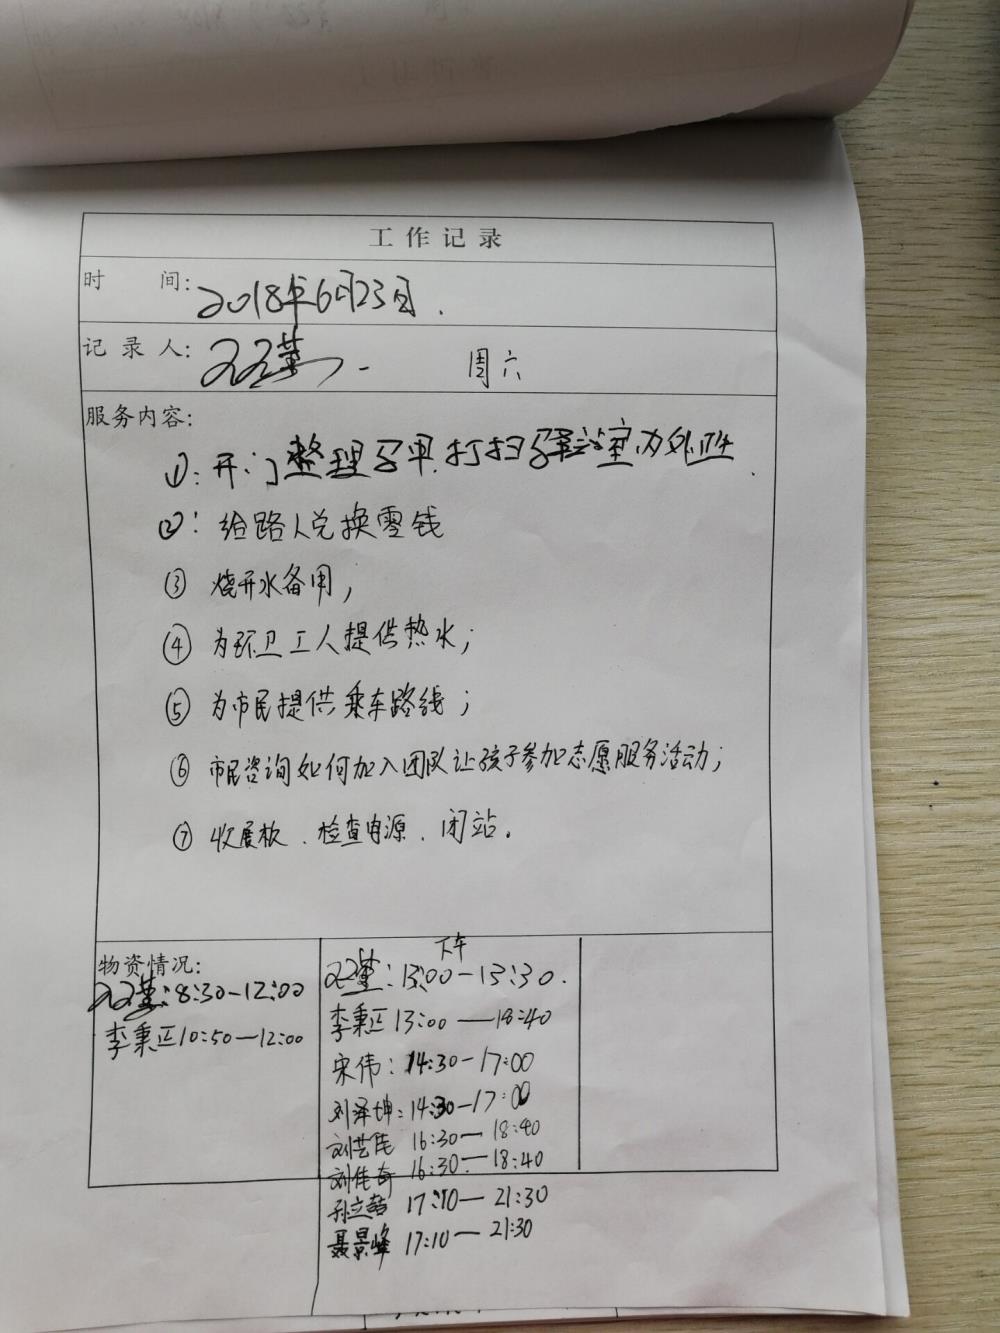 工作记录
时 间: 2018年6月23日.
记录人:
周六
服务内容:
①: 开门整理 打扫 室内外卫生.
②: 给路人兑换零钱
③ 烧开水备用,
④ 为环卫工人提供热水;
⑤ 为市民提供乘车路线;
⑥ 市民咨询如何加入团队让孩子参加志愿服务活动;
⑦ 收展板、检查电源、闭站。
物资情况:
8:30-12:00
李秉正10:50—12:00
下午
13:00-15:30.
李秉正 13:00—18:40
宋伟: 14:30-17:00
刘泽坤: 14:30-17:00
16:30— 18:40
刘佳奇 16:30— 18:40
孙立喆 17:10— 21:30
聂景峰 17:10— 21:30